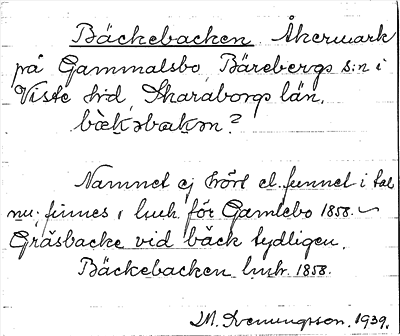 Bäckebacken. Åkermark
på Gammalsbo, Bärebergs s:n i
Viste hd, Skaraborgs län.
bækəbakən?
Namnet ej hört el. funnet i tal
nu; finnes i luh. för Gamlebo 1858. –
Gräsbacke vid bäck tydligen.
Bäckebacken luh. 1858.
M. Svenungsson, 1939.